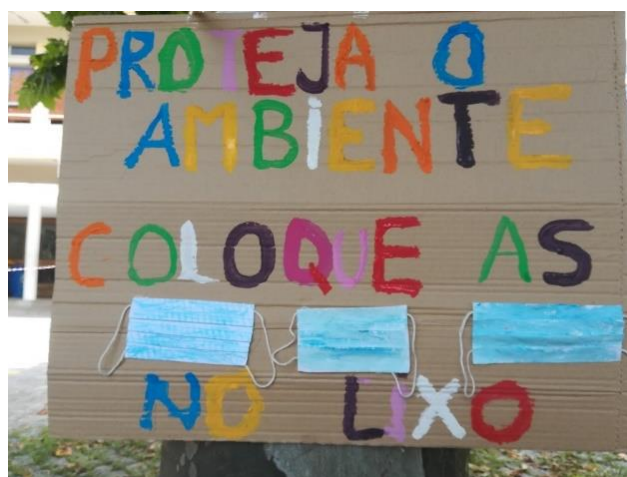 PROTEJA O
AMBIENTE
COLOQUE AS
NO LIXO